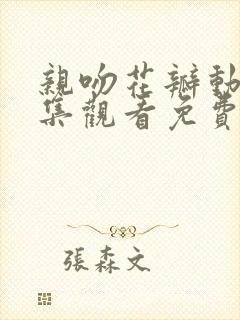 親吻花瓣動
集觀看免費
張森文